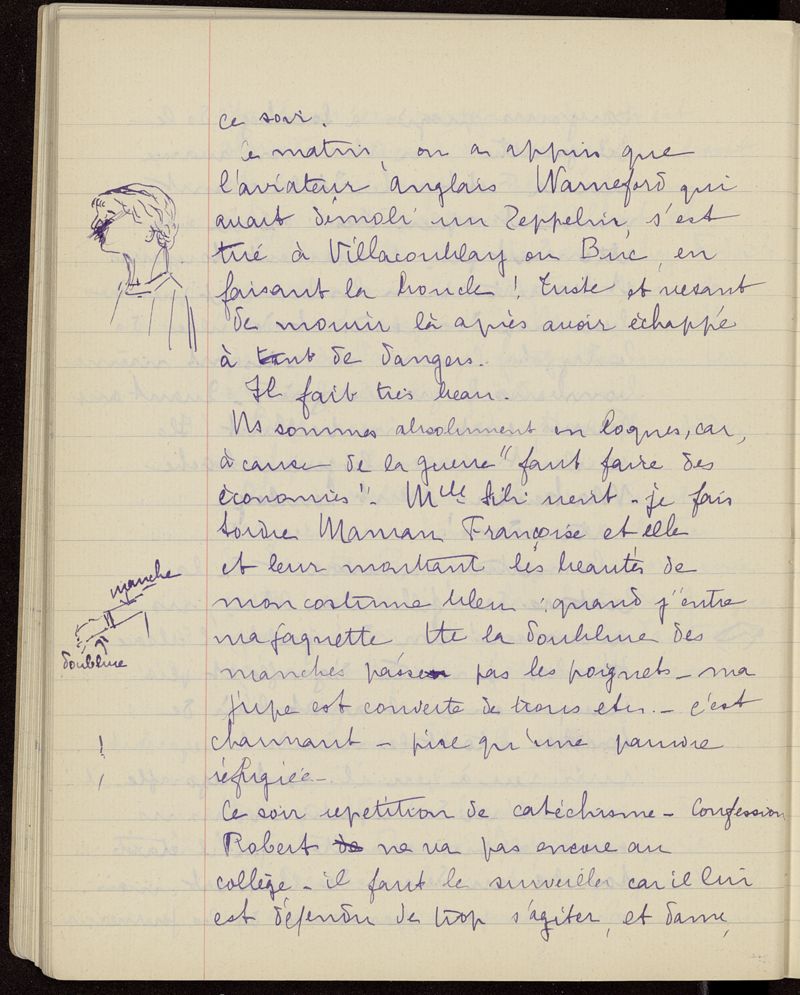 ce soir.
Ce matin, on a appris que
l'aviateur anglais Warneford qui
avait démoli un Zeppelin, s'est
tué à Villacoublay ou Buc, en
faisant la boucle ! Triste et vexant
de mourir là après avoir échappé
à tant de dangers.
Il fait très beau.
Ns sommes absolument en loques, car,
à cause de la guerre "faut faire des
économies". Melle vient - je fais
tordre Maman, Françoise et elle
et leur montrant les beautés de
mon costume bleu : quand j'entre
ma jaquette tte la doublure des
manche
manches passe pas les poignets - ma
doublure
jupe est couverte de trous etc. - c'est
charmant - pire qu'une pauvre
!
réfugiée -
!
Ce soir repetition de catéchisme - Confession
Robert de ne va pas encore au
collège - il faut le surveiller car il lui
est défendu de trop s'agiter, et dame,